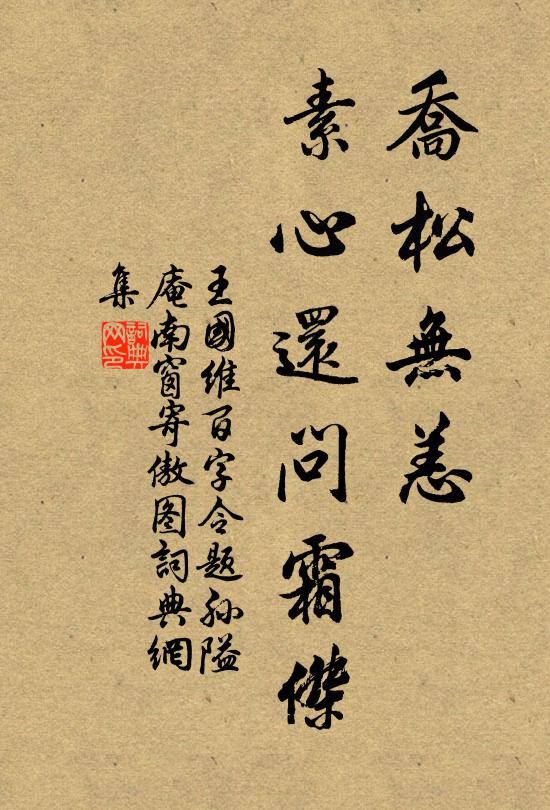 喬松無恙
素心還問霜傑
王國維百字令題孙隘
庵南窗寄傲图詞典網
集
詞典
网印